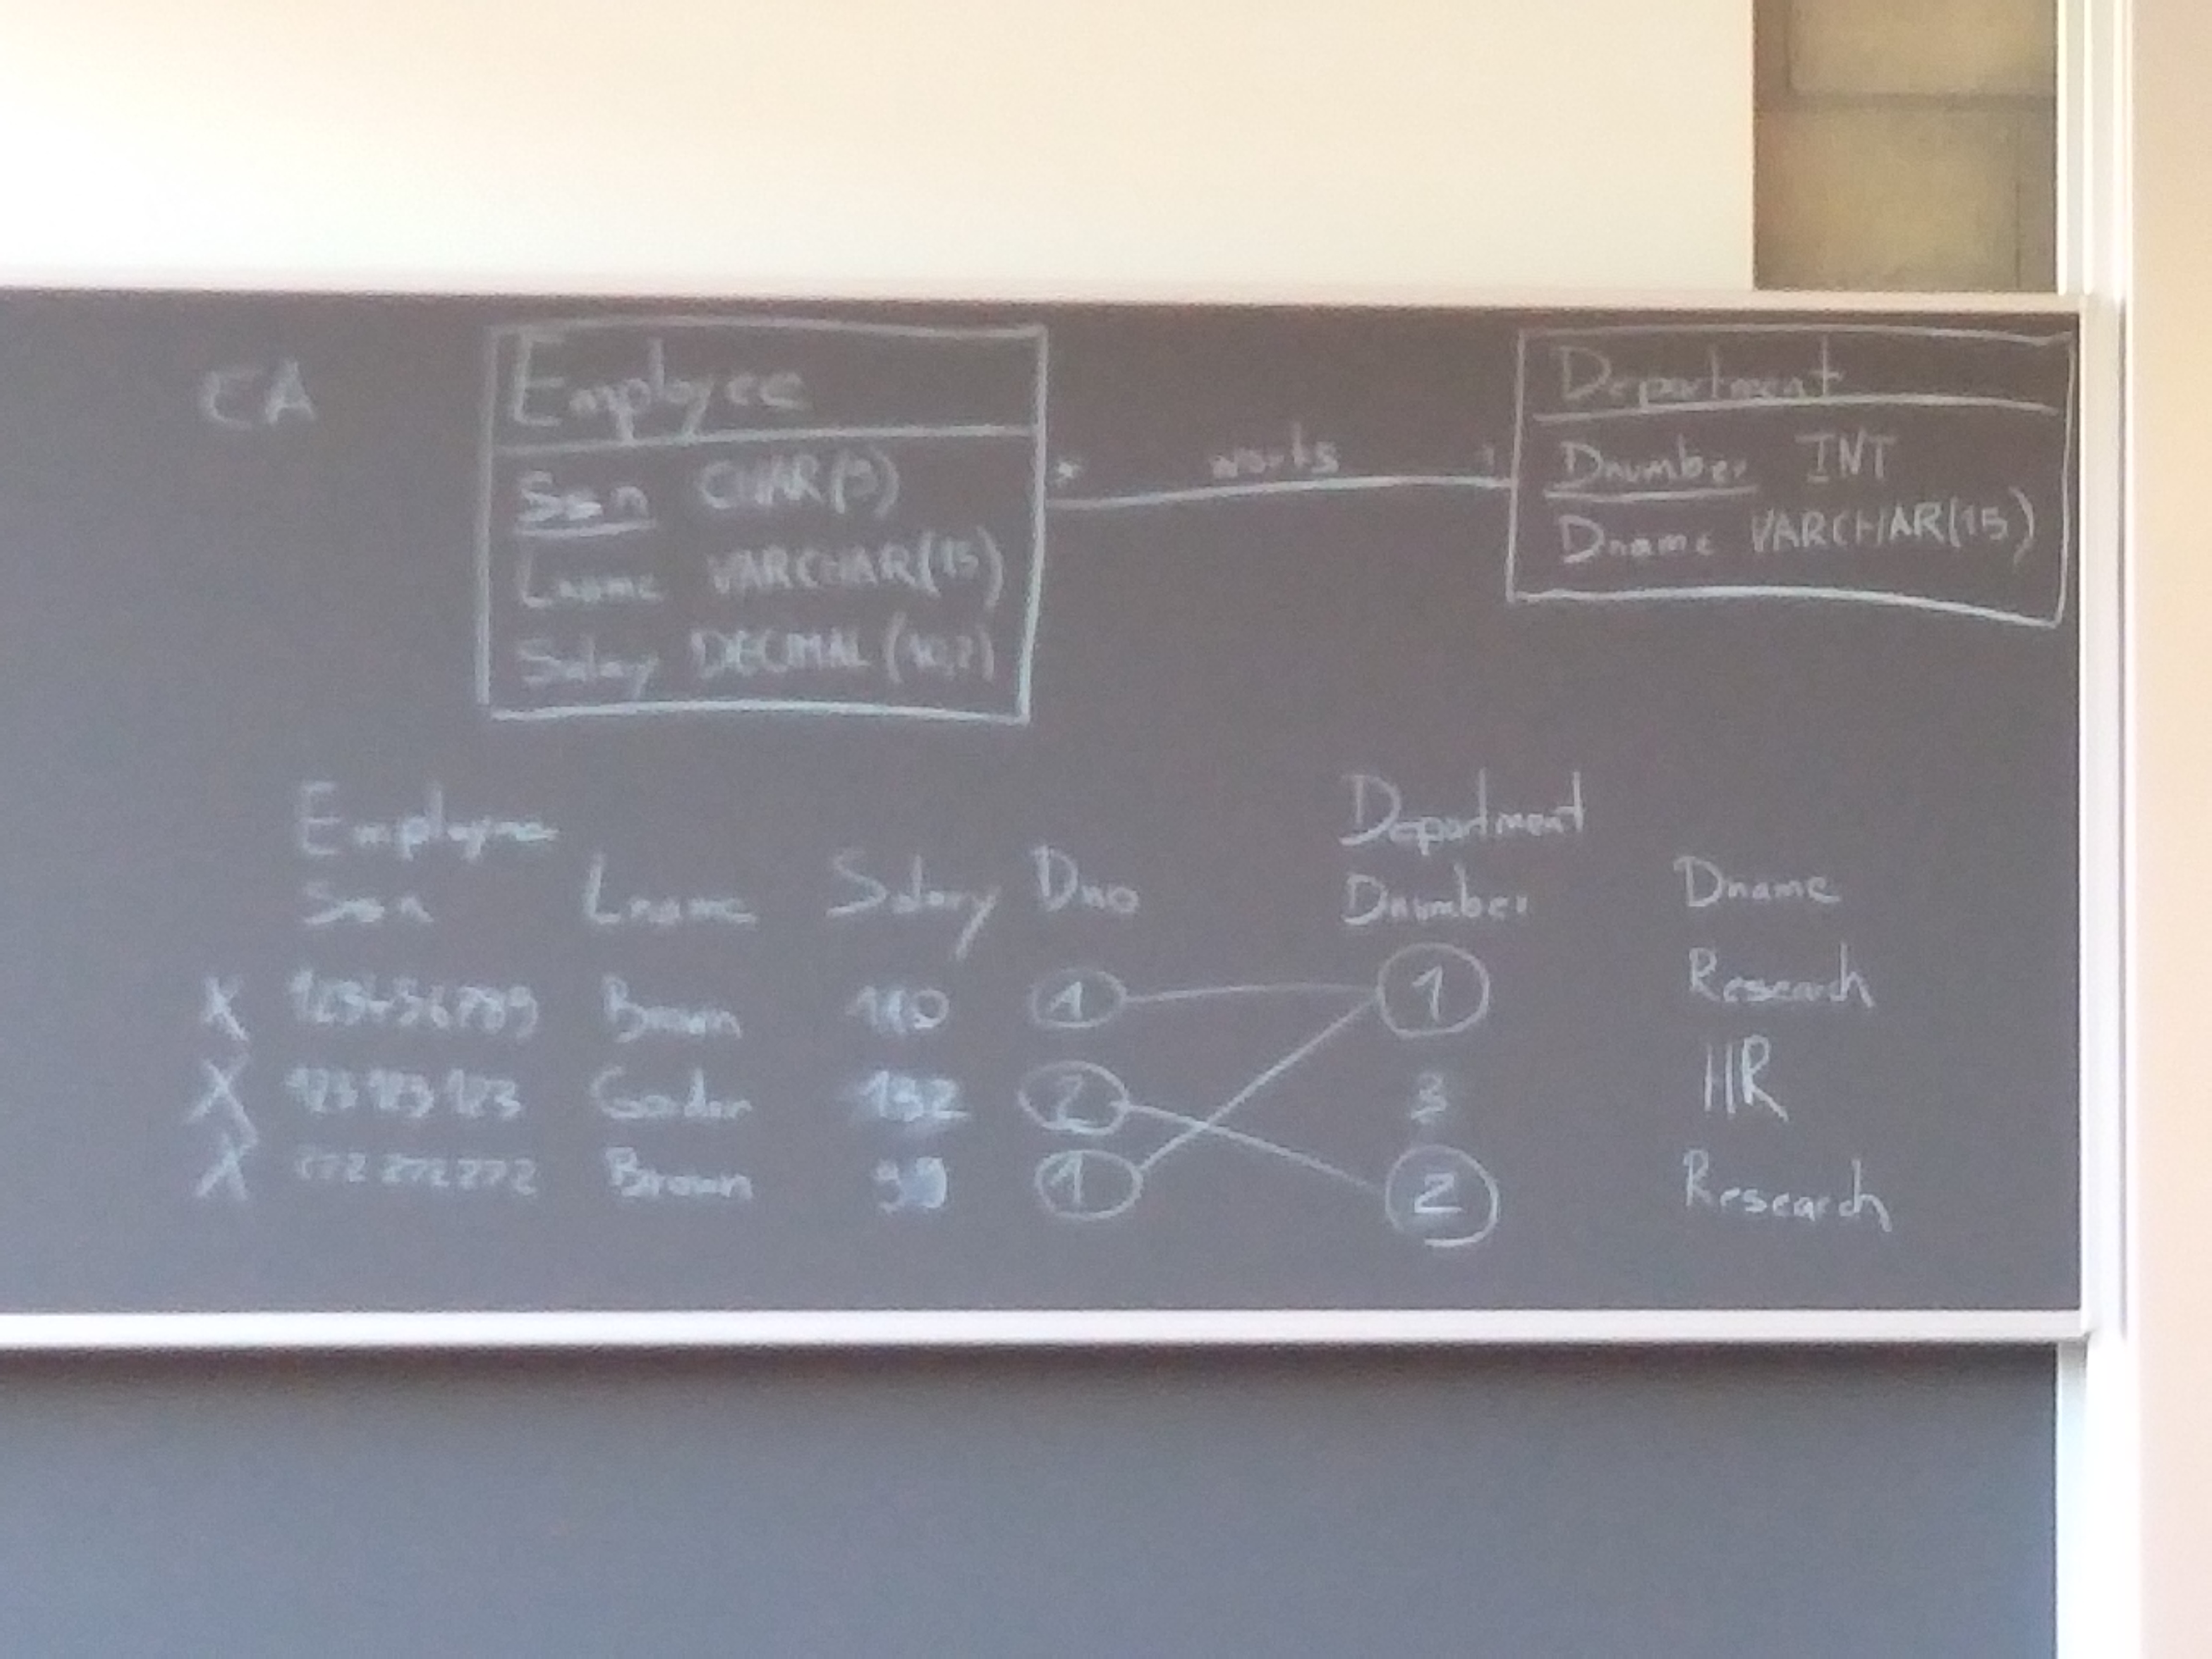 CA
Employee
Ssn CHAR(9)
Lname VARCHAR(15)
Salary DECIMAL(10,2)
* works 1
Department
Dnumber INT
Dname VARCHAR(15)
Employee
Ssn Lname Salary Dno
X 123456789 Brown 110 1
X 123123123 132 2
X 272272272 Brown 99 1
Department
Dnumber Dname
1 Research
3 HR
2 Research